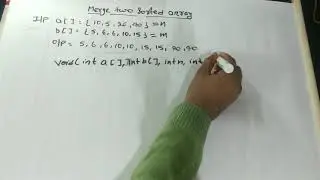 Merge two Sorted array
I/P a[] = {10, 5, 36, 40} = n
b[] = {5, 6, 6, 10, 15} = m
O/P = 5, 6, 6, 10, 10, 15, 15,
void (int a[], int b[], int n, int